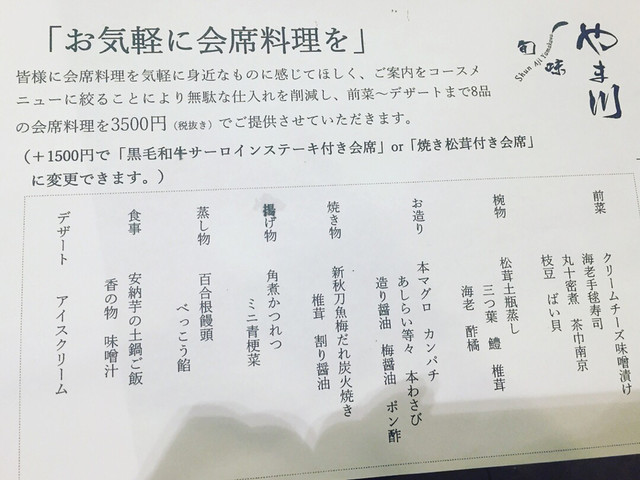 「お気軽に会席料理を」
旬味
Shun Aji Yamakawa
やま川
皆様に会席料理を気軽に身近なものに感じてほしく、ご案内をコースメ
ニューに絞ることにより無駄な仕入れを削減し、前菜～デザートまで8品
の会席料理を3500円（税抜き）でご提供させていただきます。
（＋1500円で「黒毛和牛サーロインステーキ付き会席」or「焼き松茸付き会席」
に変更できます。）
前菜
クリームチーズ味噌漬け
海老手毬寿司
丸十密煮　茶巾南京
枝豆　ばい貝
椀物
松茸土瓶蒸し
三つ葉　鱧　椎茸
海老　酢橘
お造り
本マグロ　カンパチ
あしらい等々　本わさび
造り醤油　梅醤油　ポン酢
焼き物
新秋刀魚梅だれ炭火焼き
椎茸　割り醤油
揚げ物
角煮かつれつ
ミニ青梗菜
蒸し物
百合根饅頭
べっこう餡
食事
安納芋の土鍋ご飯
香の物　味噌汁
デザート
アイスクリーム